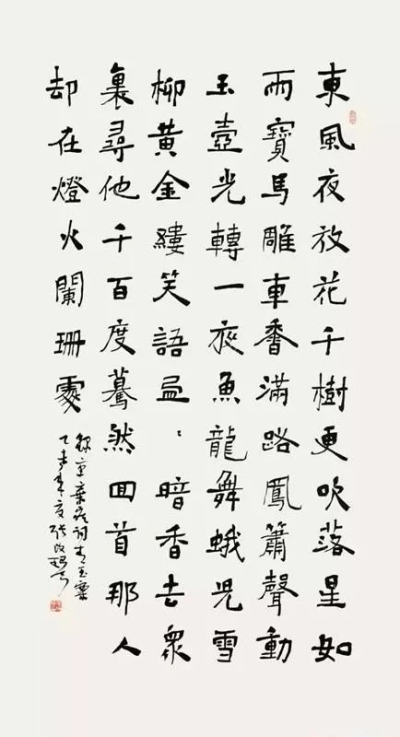 東風夜放花千樹更吹落星如
雨寶馬雕車香滿路鳳簫聲動
玉壺光轉一夜魚龍舞蛾兒雪
柳黃金縷笑語盈〻暗香去眾
裏尋他千百度驀然回首那人
却在燈火闌珊處
錄辛棄疾詞青玉案
乙未年夏